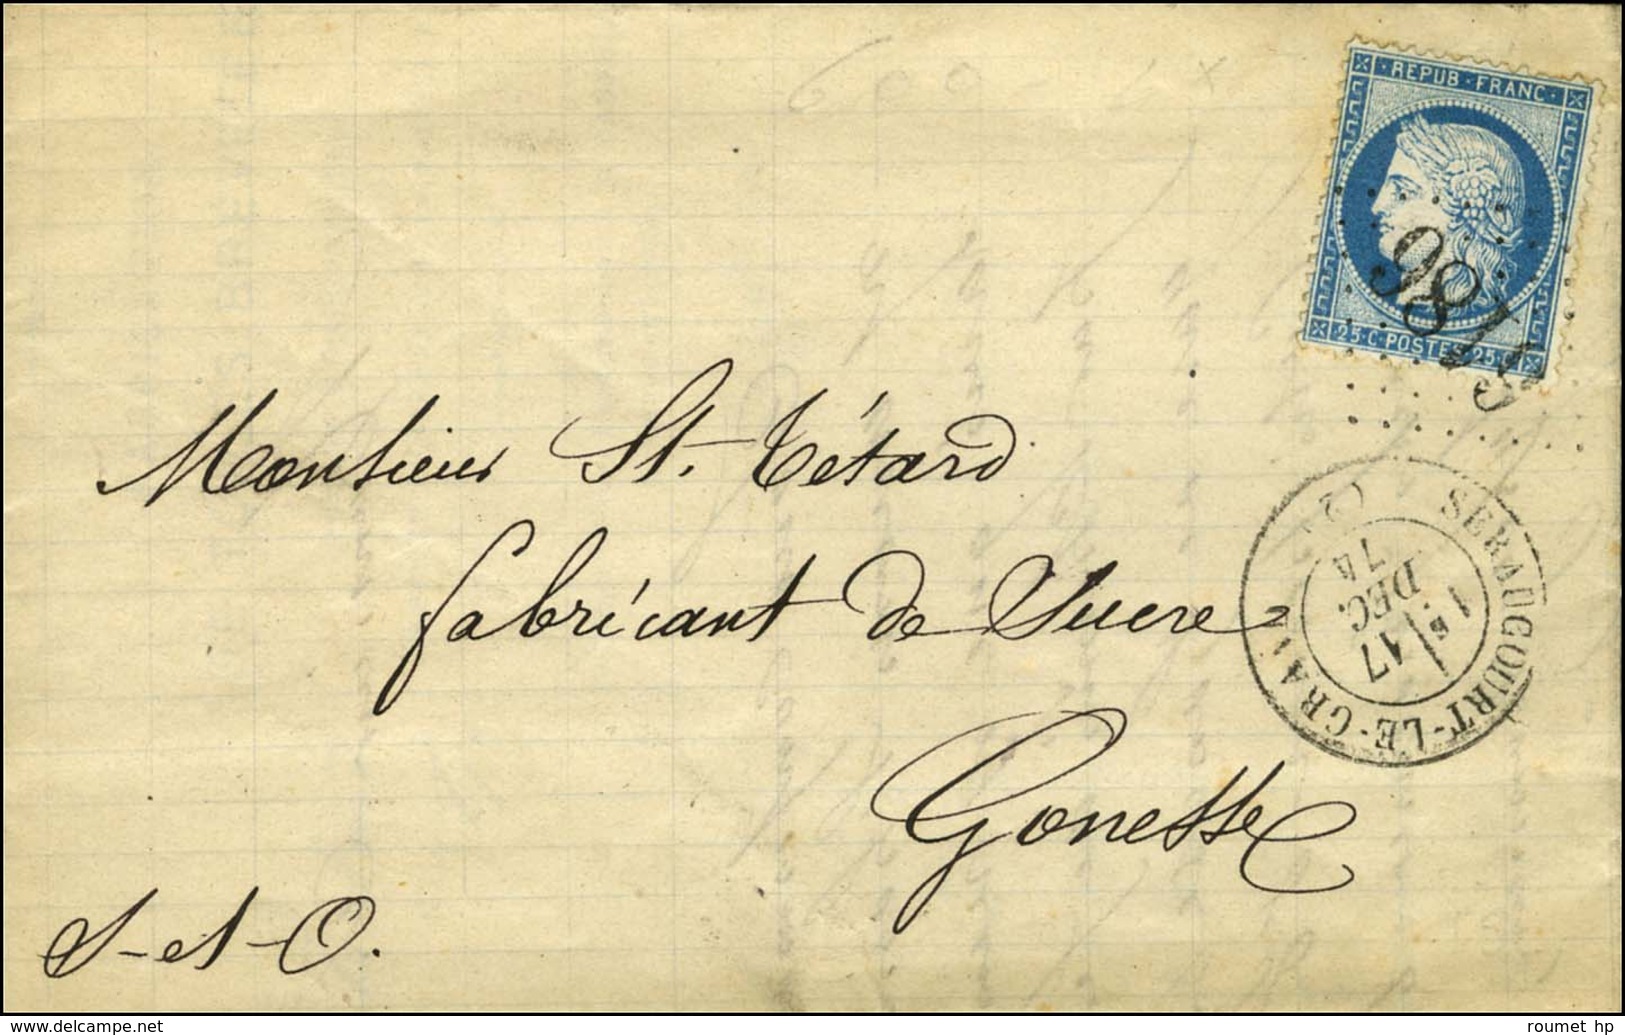 REPUB · FRANC
25 · C · POSTES · 25 · C
Monsieur St. Tétard
fabricant de Sucre
Gonesse
S-et-O.
SERAUCOURT-LE-GRAND (2)
1E
17
DEC.
74
www.delcampe.net
roumet hp